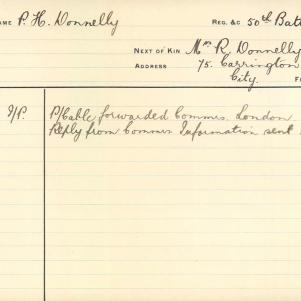 NAME P. H. Donnelly REG. &c 50th Batt
NEXT OF KIN Mrs R. Donnelly
ADDRESS 75. Carrington
City.
I/P. P/Cable forwarded Commrs. London
Reply from Commrs Information sent